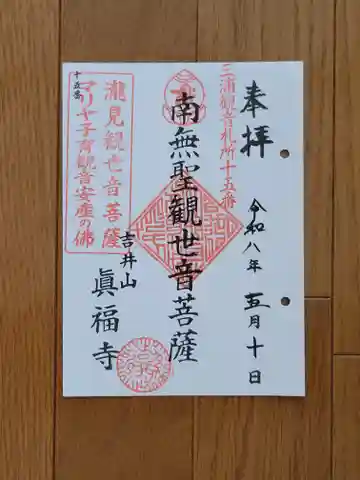 奉拝
令和八年 五月十日
三浦観音札所十五番
南無聖観世音菩薩
吉井山
眞福寺
十五番
瀧見観世音菩薩
マリヤ子育観音安産の佛